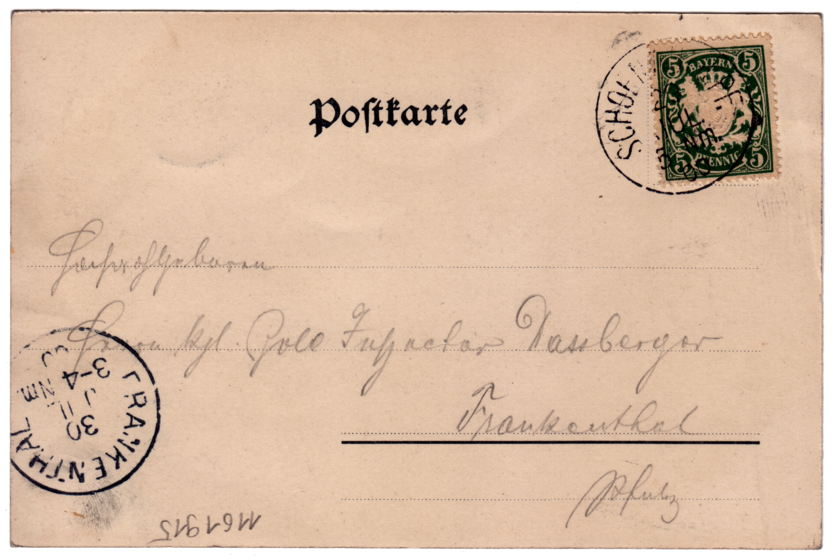 Postkarte
5 BAYERN 5
5 PFENNIG 5
Hochwohlgeboren
Herrn kgl. Zoll Inspector Wassberger
Frankenthal
Pfalz
FRANKENTHAL
30
JUL
3-4
Nm
1161915